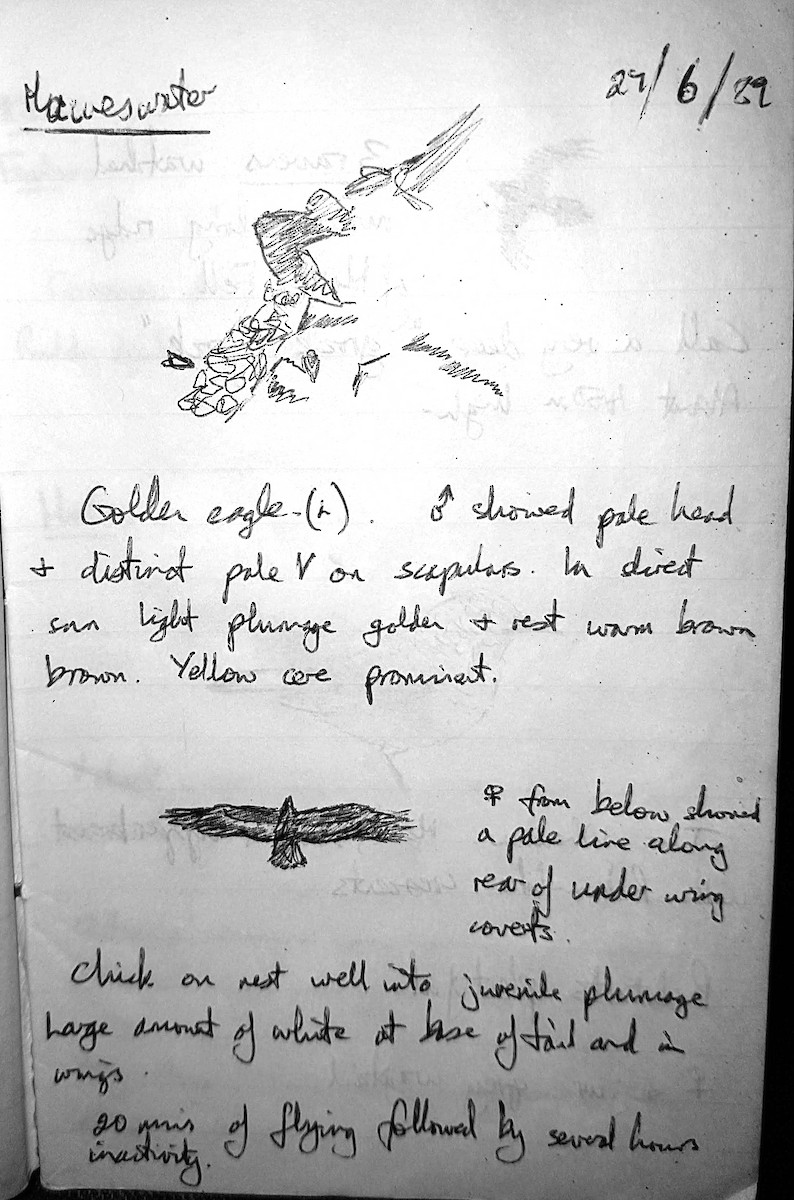 Haweswater
29/6/89
Golden eagle - (2). ♂ showed pale head
+ distinct pale V on scapulars. In direct
sun light plumage golden + rest warm brown
brown. Yellow cere prominent.
♀ from below showed
a pale line along
rear of under wing
coverts.
Chick on nest well into juvenile plumage
Large amount of white at base of tail and in
wings.
20 mins of flying followed by several hours
inactivity.